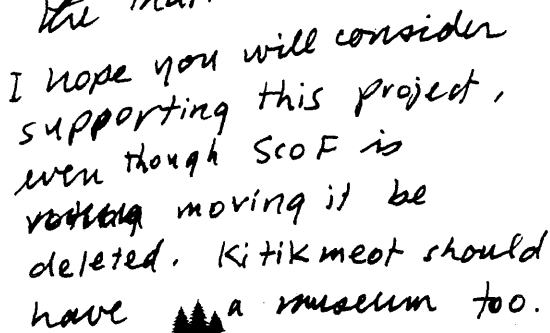 the
I hope you will consider
supporting this project,
even though ScoF is
moving it be
deleted. Kitikmeot should
have a museum too.